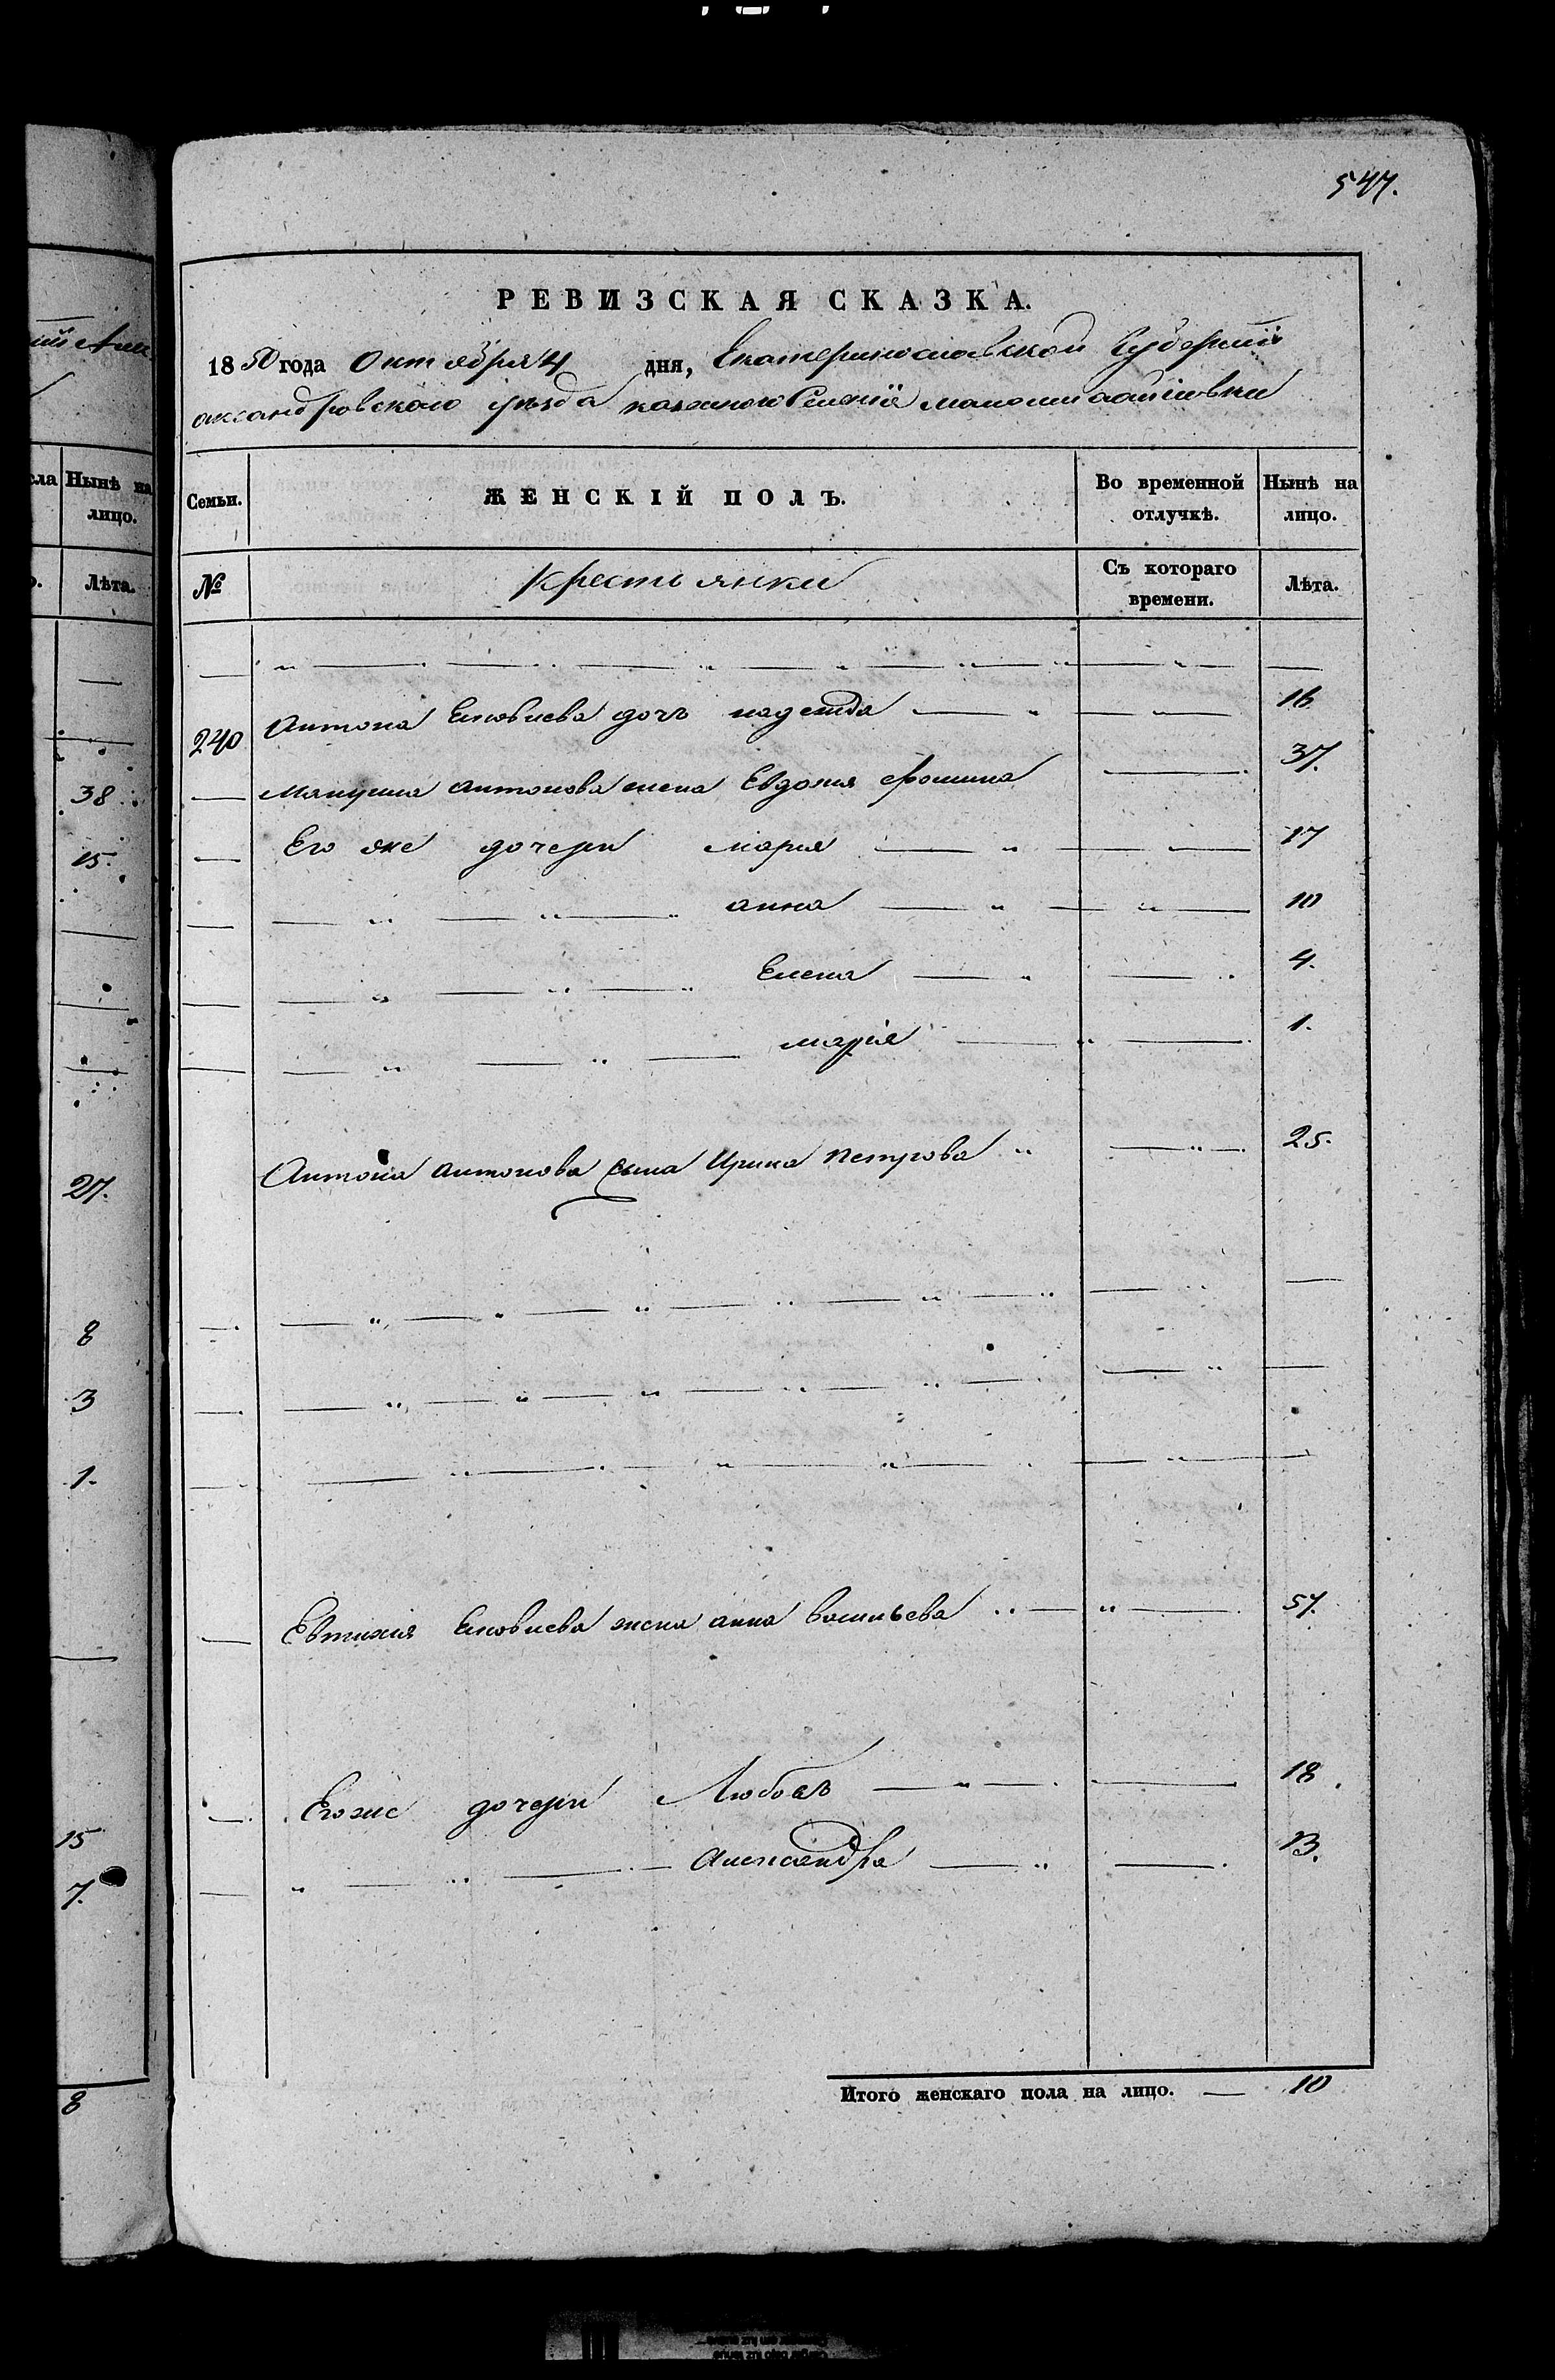 547.
РЕВИЗСКАЯ СКАЗКА.
1850 года Октября 4 дня, Екатеринославской Губернии
александровского уезда казенного Селенія
Семьи. ЖЕНСКІЙ ПОЛЪ. Во временной отлучкѣ. Нынѣ на лицо.
№ Крестьянки Съ котораго времени. Лѣта.
240 Антона Яковлева дочь надежда 16
антонова жена Евдокия Фомина 37.
Его же дочери мария 17
анна 10
Елена 4.
марія 1.
Антона антонова жена Ирина Петрова 25.
Евтихия Яковлева жена анна васильева 57.
Егоже дочери Любовъ 18.
Александра 13.
Итого женскаго пола на лицо. 10
сла Нынѣ на лицо.
Лѣта.
38
15.
27.
8
3
1.
15
7.
8